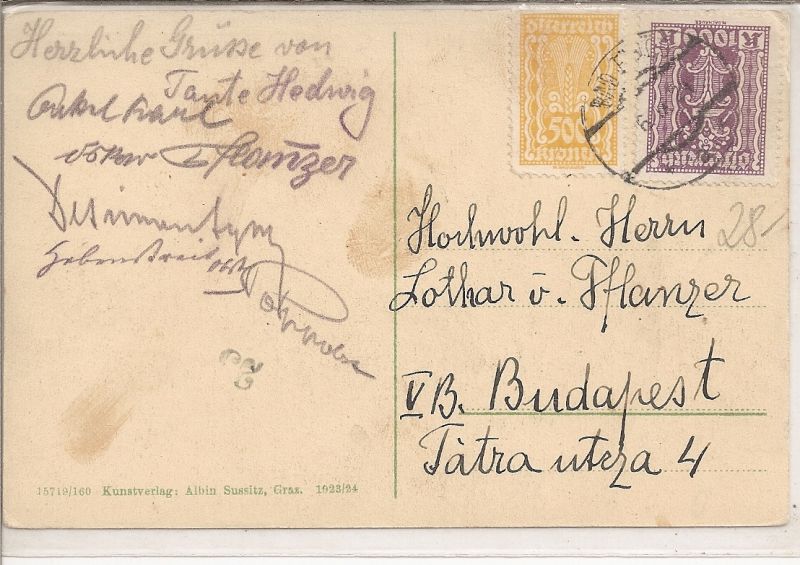 Herzliche Grüsse von
Tante Hedwig
Onkel Karl
Oskar Pflanzer
Hebenstreit
Österreich
500
Kronen
1000
K
K
Österreich
28.-
Hochwohl. Herrn
Lothar v. Pflanzer
V B. Budapest
Tátra utcza 4
15719/160 Kunstverlag: Albin Sussitz, Graz. 1923/24